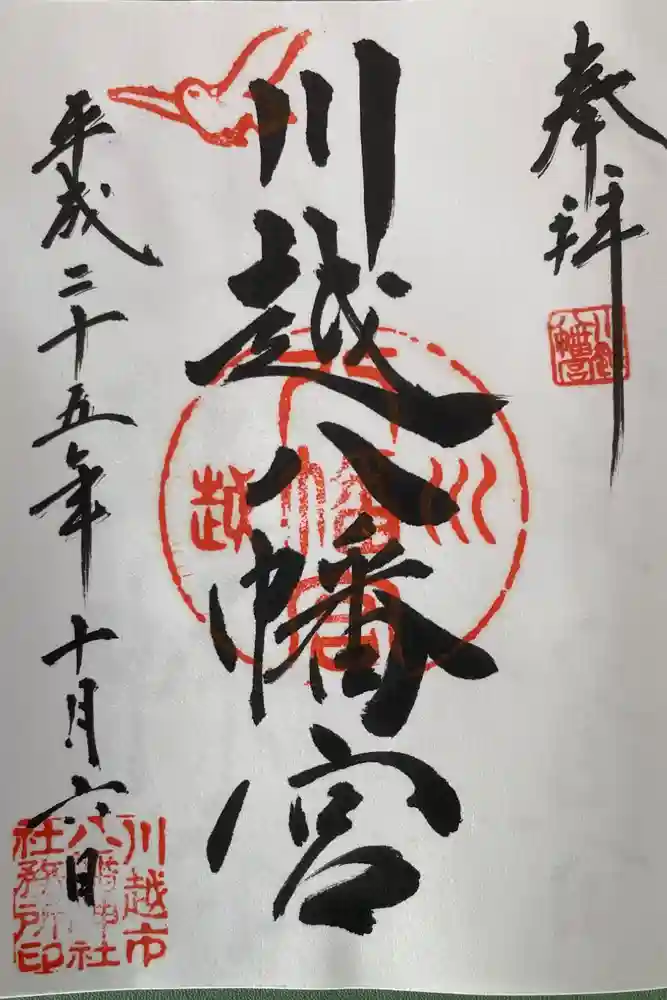 奉拝
川越八幡宮
川越八幡宮
川越八幡宮
平成二十五年十月六日
川越市
八幡神社
社務所印